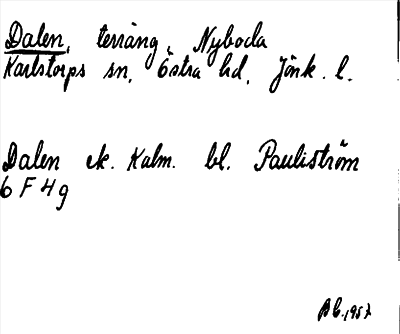 Dalen, terräng, Nyboda
Karlstorps sn, Östra hd, Jönk. l.
Dalen ek. Kalm. bl. Pauliström
6 F 4 g
1957